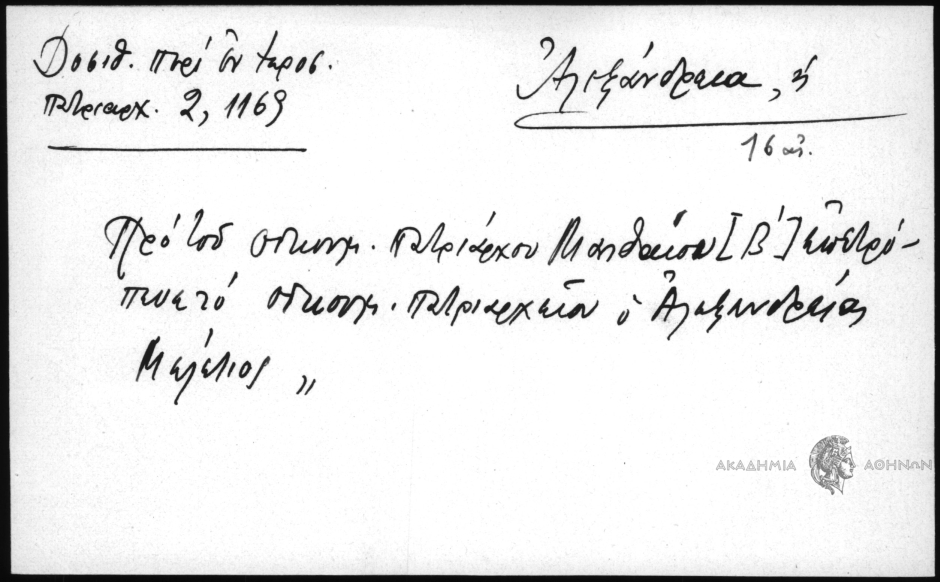 Δοσιθ. περί ἐν Ἱεροσ.
πατριαρχ. 2, 1169
Ἀλεξάνδρεια, ἡ
16 αἰ.
Πρό τοῦ οἰκουμ. πατριάρχου Ματθαίου [Β'] ἐπετρό-
πευε τό οἰκουμ. πατριαρχεῖον ὁ Ἀλεξανδρείας
Μελέτιος „
ΑΚΑΔΗΜΙΑ ΑΘΗΝΩΝ